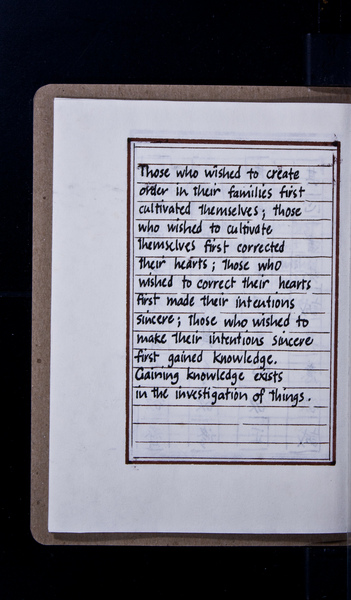 Those who wished to create
order in their families first
cultivated themselves; those
who wished to cultivate
themselves first corrected
their hearts; those who
wished to correct their hearts
first made their intentions
sincere; those who wished to
make their intentions sincere
first gained knowledge.
Gaining knowledge exists
in the investigation of things.